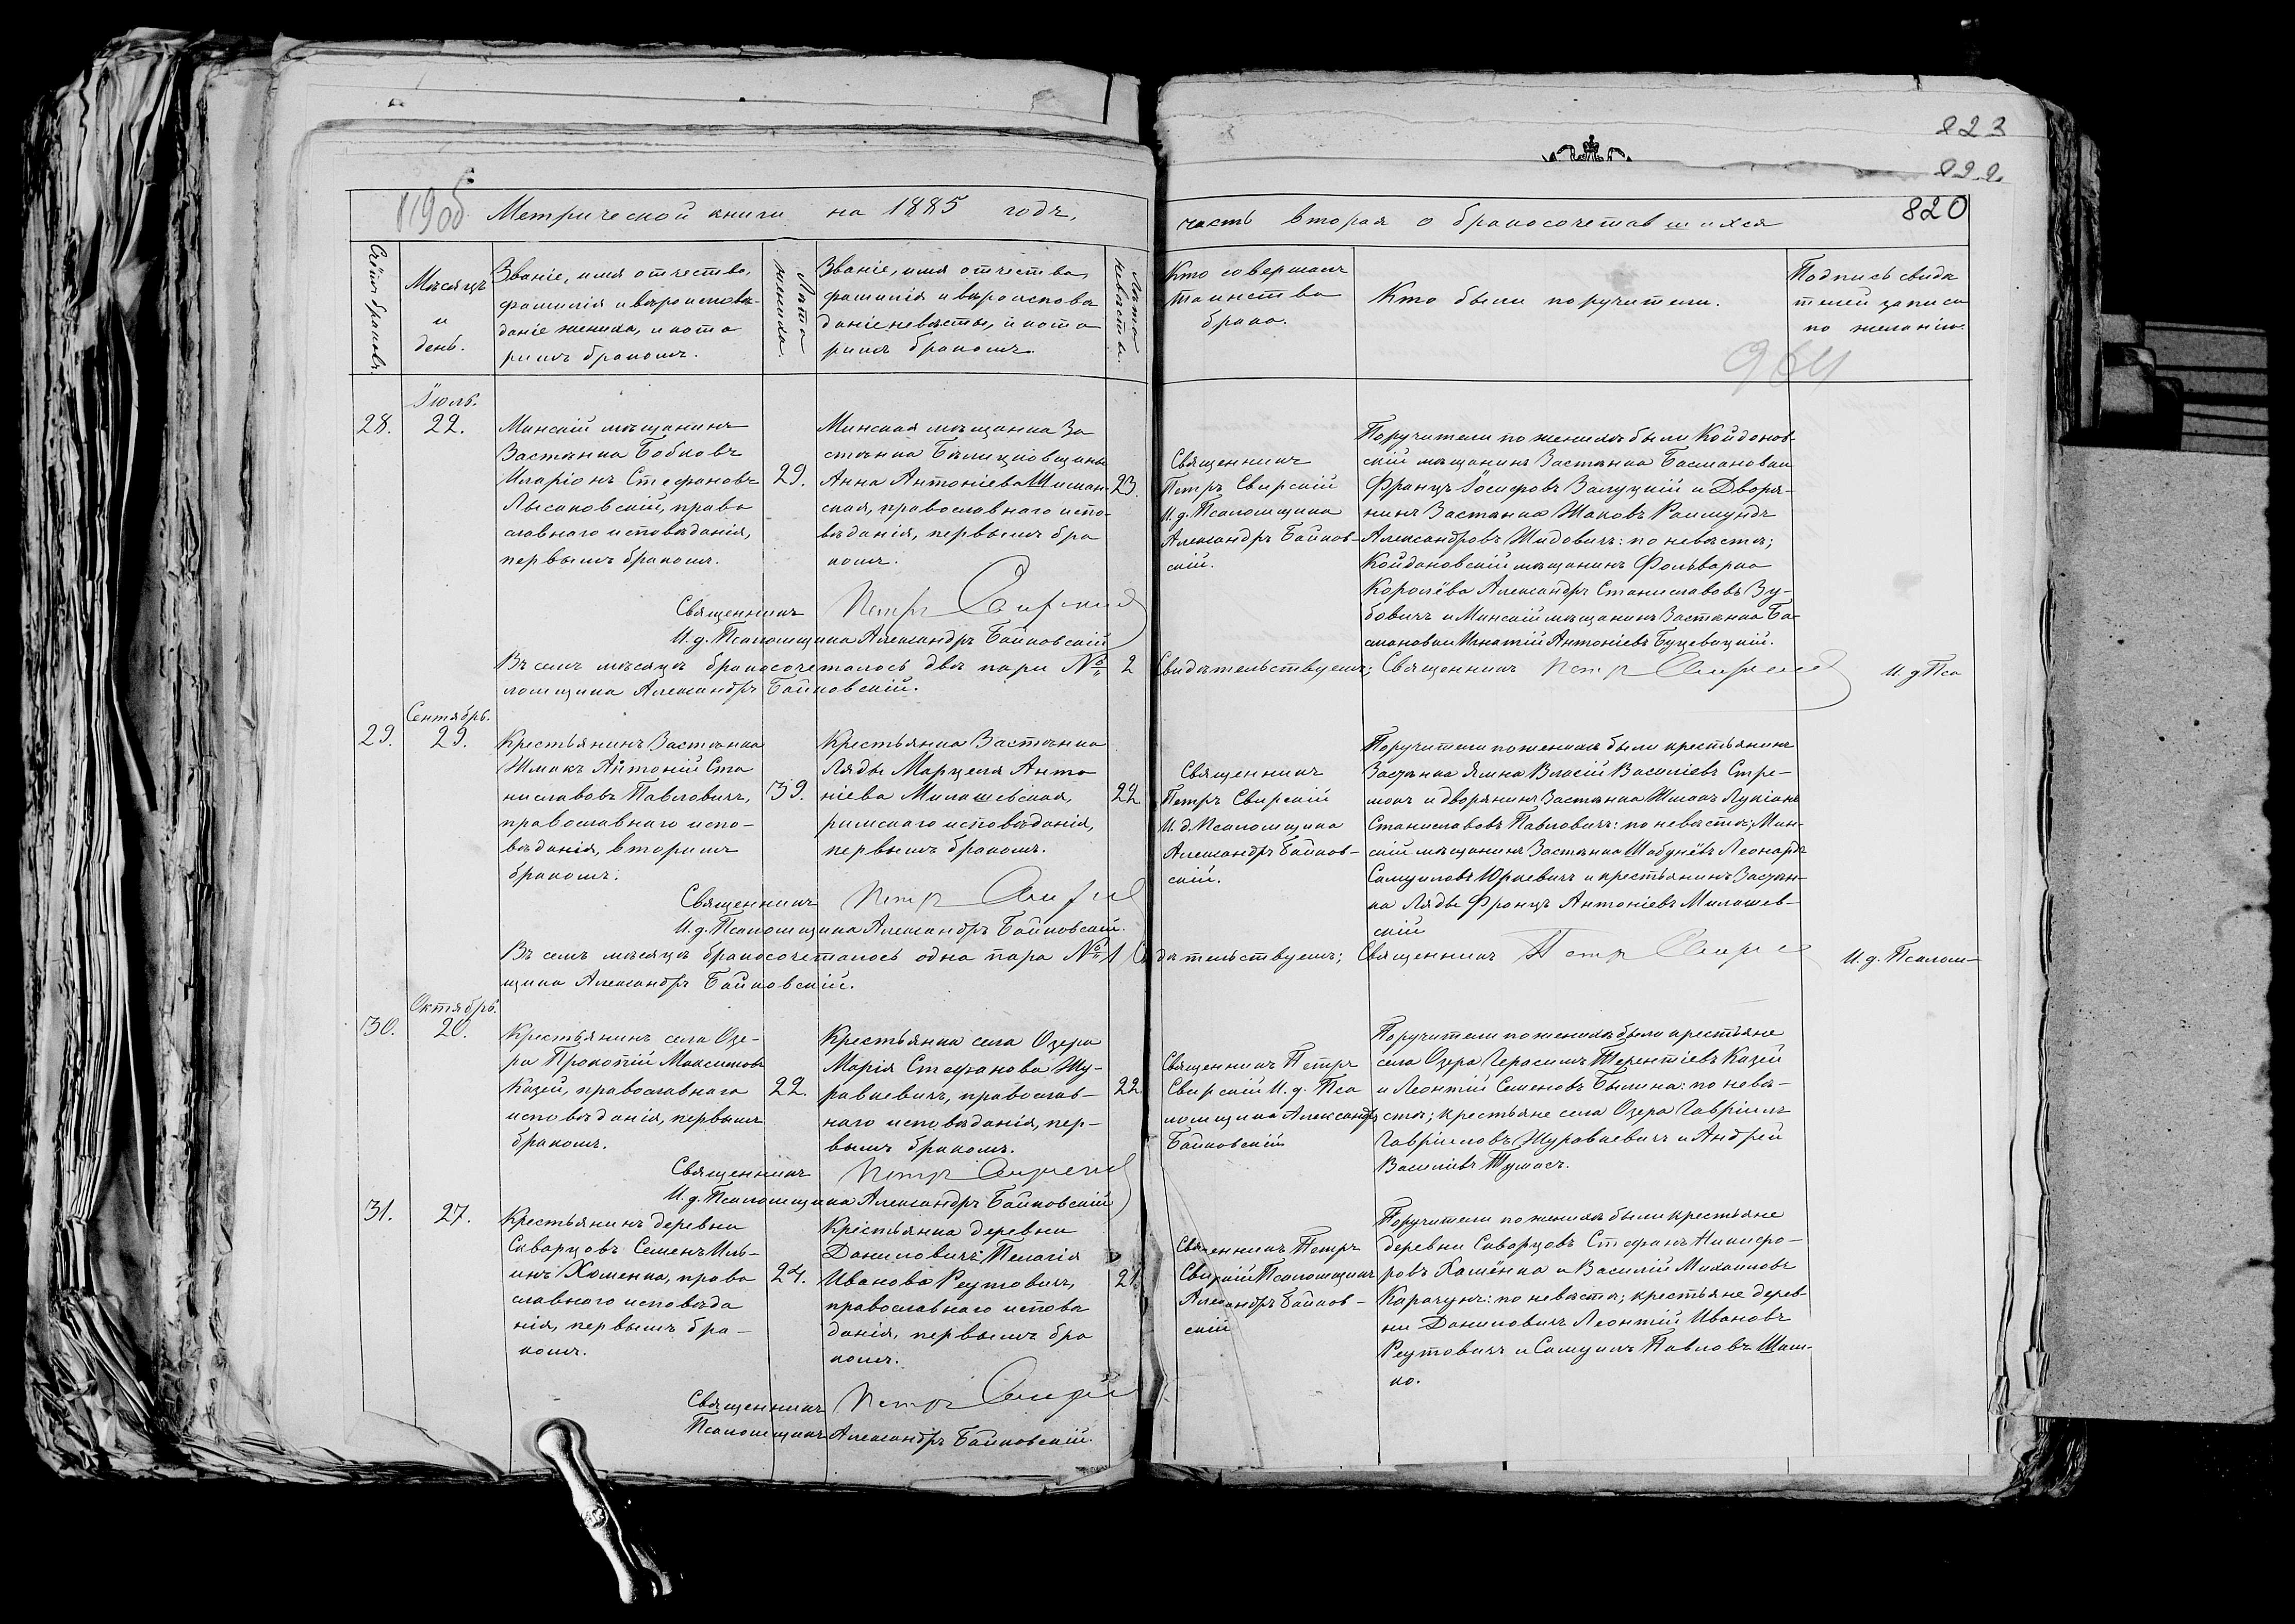 823
822
820
819об.
Метрической книги на 1885 годъ,
часть вторая о бракосочетавшихся
Счётъ браковъ.
Мѣсяцъ
и
день.
Званіе, имя отчество,
фамилія и вѣроисповѣ-
даніе жениха, и кото
рымъ бракомъ.
Лѣта
жениха.
Званіе, имя отчество,
фамилія и вѣроисповѣ
даніе невѣсты, и кото
рымъ бракомъ.
Лѣта
невѣсты.
Кто совершалъ
таинство
брака.
Кто были поручители.
Подпись свидѣ
телей записи
по желанію.
964
Іюль.
28. 22.
Минскій мѣщанинъ
Застѣнка Бобковъ
Иларіонъ Стефановъ
Лысаковскій, право
славнаго исповѣданія,
первымъ бракомъ.
29.
Минская мѣщанка За
стѣнка
Анна Антоніева Шиман-
ская, православнаго испо-
вѣданія, первымъ бра
комъ.
23.
Священникъ
Петръ Свирскій
И. д. Псаломщика
Александръ Байков-
скій.
Поручители по женихѣ были Койданов-
скій мѣщанинъ Застѣнка Басмановки
Францъ Іосифовъ Залуцкій и Дворя-
нинъ Застѣнка Шаковъ Раймундъ
Александровъ Жидовичъ: по невѣстѣ;
Койдановскій мѣщанинъ Фольварка
Королёва Александръ Станиславовъ Зу-
бовичъ и Минскій мѣщанинъ Застѣнка Ба-
смановки Игнатій Антоніевъ
Священникъ Петръ Свирскій
И. д. Псаломщика Александръ Байковскій
Въ семъ мѣсяцѣ бракосочеталось двѣ пары № 2 Свидѣтельствуемъ; Священникъ Петръ Свирскій И. д Пса
ломщика Александръ Байковскій.
Сентябрь.
29. 29.
Крестьянинъ Застѣнка
Шмакъ Антоній Ста
ниславовъ Павловичъ,
православнаго испо-
вѣданія, вторымъ
бракомъ.
39.
Крестьянка Застѣнка
Ляды Марцеля Анто
ніева Милашевская,
римскаго исповѣданія,
первымъ бракомъ.
22
Священникъ
Петръ Свирскій
И. д. Псаломщика
Александръ Байков-
скій.
Поручители по женихѣ были крестьянинъ
Застѣнка Ямна Власій Василіевъ Стре-
мокъ и дворянинъ Застѣнка Шмакъ Лукіанъ
Станиславовъ Павловичъ: по невѣстѣ; Мин-
скій мѣщанинъ Застѣнка Шабунёвъ Леонардъ
Самуиловъ Юркевичъ и крестьянинъ Застѣн-
ка Ляды Францъ Антоніевъ Милашев-
скій
Священникъ Петръ Свирскій
И. д. Псаломщика Александръ Байковскій.
Въ семъ мѣсяцѣ бракосочеталось одна пара № 1 Свидѣтельствуемъ; Священникъ Петръ Свирскій И. д. Псалом-
щика Александръ Байковскій.
Октябрь.
30. 20.
Крестьянинъ села Озе-
ра Прокопій Максимовъ
Казей, православнаго
исповѣданія, первымъ
бракомъ.
22.
Крестьянка села Озера
Марія Стефанова Жу-
равкевичъ, православ-
наго исповѣданія, пер-
вымъ бракомъ.
22
Священникъ Петръ
Свирскій И. д. Пса
ломщика Александръ
Байковскій
Поручители по женихѣ были крестьяне
села Озера Герасимъ Терентіевъ Казей
и Леонтій Семеновъ Былина: по невѣ-
стѣ; крестьяне села Озера Гавріилъ
Гавріиловъ Журавкевичъ и Андрей
Василіевъ Тумасъ.
Священникъ Петръ Свирскій
И. д. Псаломщика Александръ Байковскій
31. 27.
Крестьянинъ деревни
Скварцовъ Семенъ Иль-
инъ Хоменка, право
славнаго исповѣда
нія, первымъ бра-
комъ.
24.
Крестьянка деревни
Даниловичъ Пелагія
Иванова Реутовичъ,
православнаго исповѣ
данія, первымъ бра
комъ.
21.
Священникъ Петръ
Свирскій Псаломщикъ
Александръ Байков-
скій
Поручители по женихѣ были крестьяне
деревни Скворцовъ Стефанъ Никифо-
ровъ Хамёнка и Василій Михаиловъ
Карачунъ: по невѣстѣ; крестьяне дерев-
ни Даниловичъ Леонтій Ивановъ
Реутовичъ и Самуилъ Павловъ Шаш-
ко.
Священникъ Петръ Свирскій
Псаломщикъ Александръ Байковскій.